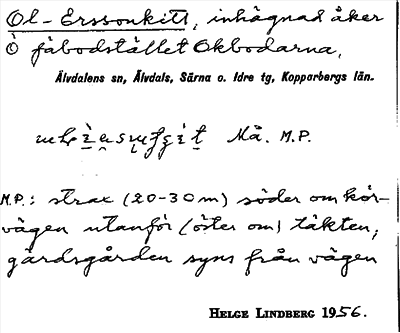 Ol-Erssonkitt, inhägnad åker
å fäbodstället Okbodarna,
Älvdalens sn, Älvdals, Särna o. Idre tg, Kopparbergs län.
Må. M.P.
M.P.: strax (20-30 m) söder om kör-
vägen utanför (öster om) täkten;
gärdsgården syns från vägen
HELGE LINDBERG 1956.